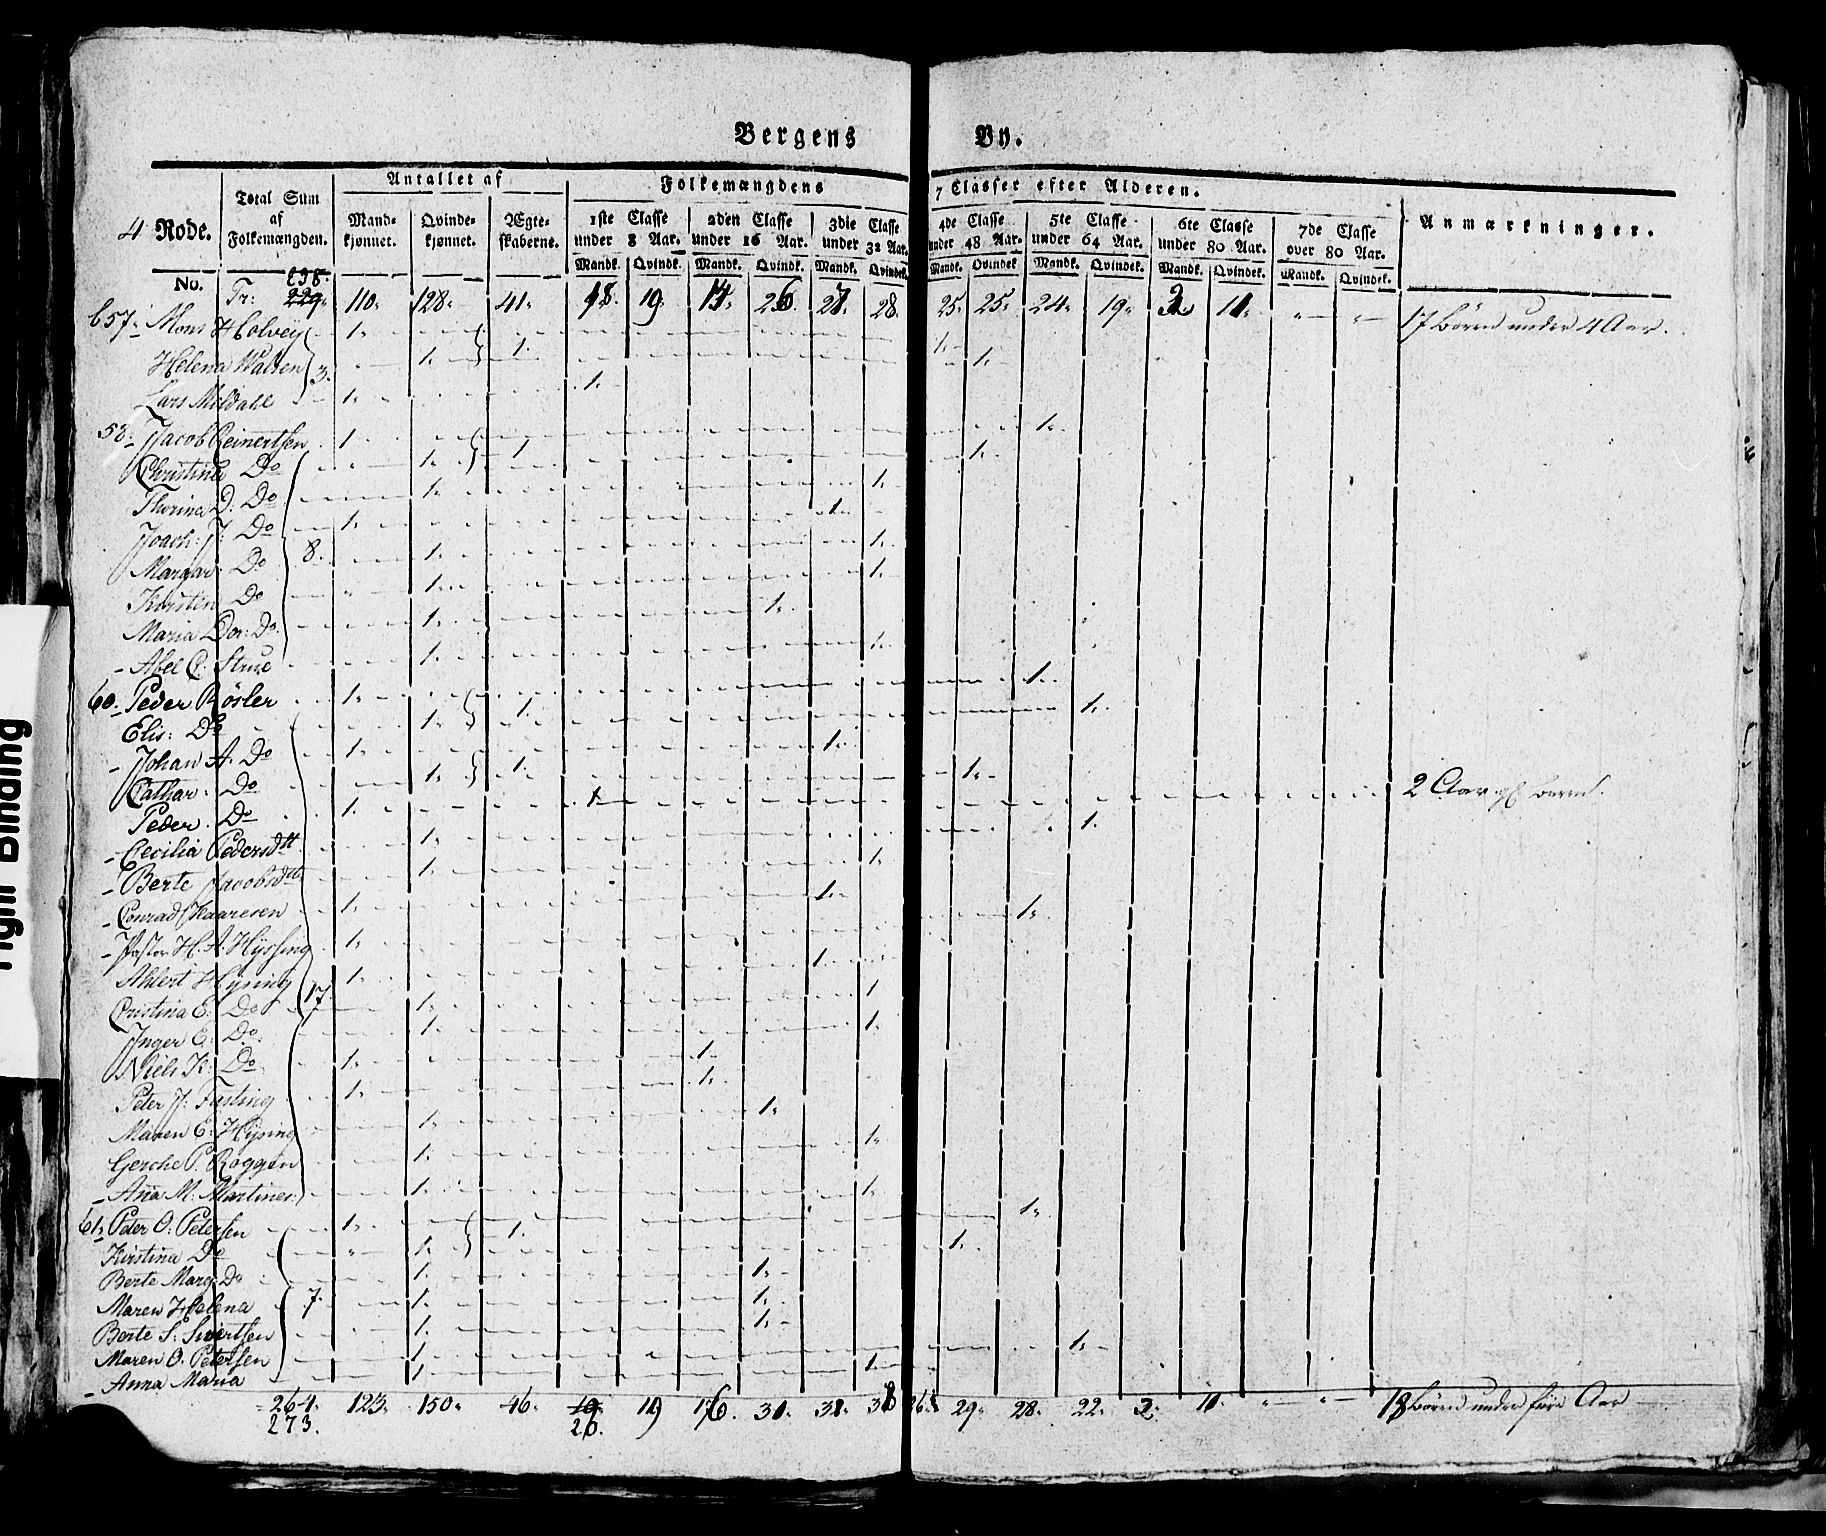 Bergens By.
Total Sum af Folkemængden. Antallet af Folkemængdens 7 Classer efter Alderen.
4 Rode. Mandkjønnet. Qvindekjønnet. Ægteskaberne. 1ste Classe under 8 Aar. 2den Classe under 16 Aar. 3die Classe under 32 Aar. 4de Classe under 48 Aar. 5te Classe under 64 Aar. 6te Classe under 80 Aar. 7de Classe over 80 Aar. Anmærkninger.
Mandk. Qvindk. Mandk. Qvindk. Mandk. Qvindek. Mandk. Qvindek Mandk. Qvindek. Mandk. Qvindek. Mandk. Qvindek.
No. Tr: 238. 229. 110. 128. 41. 18. 19. 26. 27. 28. 25. 25. 24. 19. 11. " "
657. Mons Holvey 1. 1. 17 Börn under 4 Aar.
Helena Walsen 3. 1. 1. 1.
Lars Meldahl 1. 1.
58. Jacob Reinertsen 1. 1.
Christina Do 1. 1. 1.
Thorina D: Do 1. 1.
Joach: J: Do 1. 1.
Margar: Do 8. 1. 1.
Kirsten Do 1. 1.
Maria Dor: Do. 1. 1.
Abel C. Strue 1. 1.
60. Peder Rösler 1. 1. 1.
Elis: Do 1. 1.
Johan A. Do 1. 1. 1.
Cathar. Do 1. 1.
Peder. Do 1. 1. 2 Aar gl barn
Cecilia Pedersdtt 1. 1.
Berte Jacobsdtt 1. 1.
Conrad Kaaresen 1. 1.
Pastor H. A. Hyssing 1. 1.
Ahlert Hysing 17. 1. 1.
Cristina E: Do 1. 1
Inger E: Do. 1. 1.
Niels K: Do 1. 1.
Peter J: Fasting 1. 1.
Maren E: Hysing 1. 1.
Gerche P. Roggen 1. 1.
Aña M: Martines: 1. 1.
61. Peter O: Petersen 1. 1. 1.
Kirstina Do 1. 1.
Berte Marg Do 1. 1.
Maren Helena 7. 1. 1.
Berte S: Sivertsen 1. 1.
Maren O. Petersen 1. 1.
Anna Maria 1. 1.
264. 123. 150. 46. 19. 176. 31. 31. 38 26. 29. 28. 22. 2. 11. " " 18 Börn under fiire Aar
273. 26.